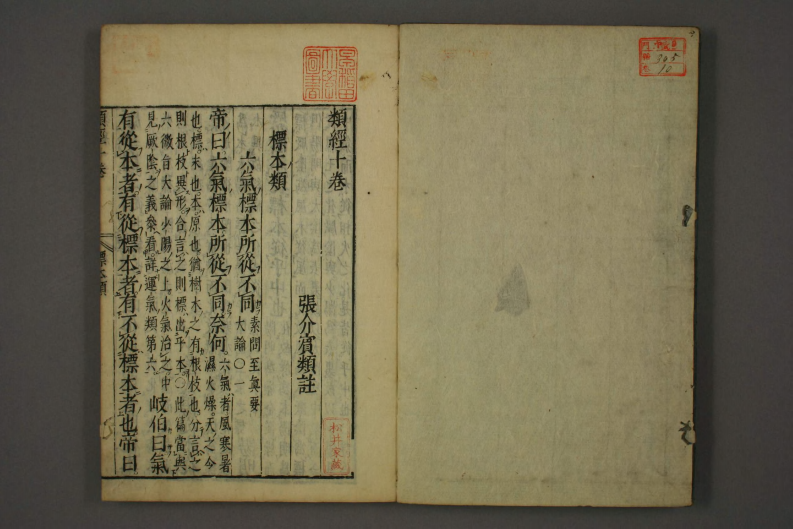 類經十卷
張介賓類註
標本類
六氣標本所從不同
素問至眞要
大論○一
帝曰六氣標本所從不同奈何
六氣者風寒暑
濕火燥天之令
也標末也本原也猶樹木之有根枝也分言之
則根枝異形合言之則標出乎本○此篇當與
六微旨大論少陽之上火氣治之中
見厥陰之義參看詳運氣類第六
岐伯曰氣
有從本者有從標本者有不從標本者也帝曰
類經十卷
標本類
松井家藏
305
10